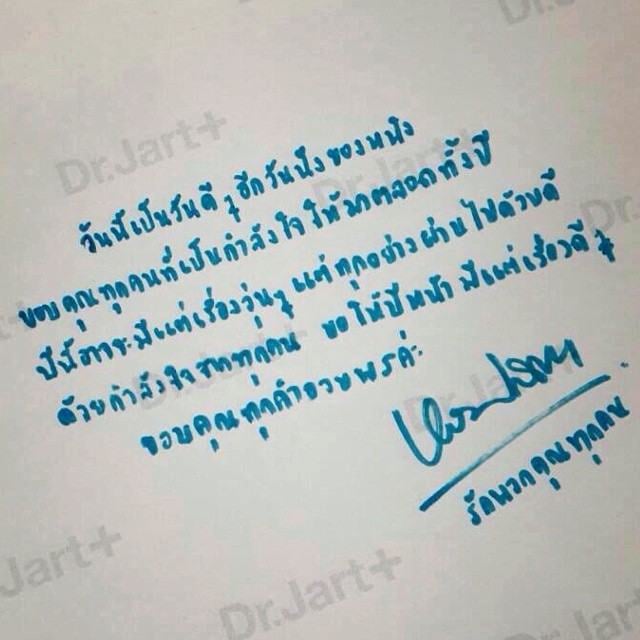 วันนี้เป็นวันดี ๆ อีกวันนึงของหนิง
ขอบคุณทุกคนที่เป็นกำลังใจ ให้มาตลอดทั้งปี
ปีนี้อาจจะมีแต่เรื่องวุ่น ๆ แต่ทุกอย่างผ่านไปด้วยดี
ด้วยกำลังใจจากทุกคน ขอให้ปีหน้า มีแต่เรื่องดี ๆ
ขอบคุณทุกคำอวยพรค่ะ
รักพวกคุณทุกคน
Dr.Jart+
Dr.Jart+
Dr.Jart+
Dr.Jart+